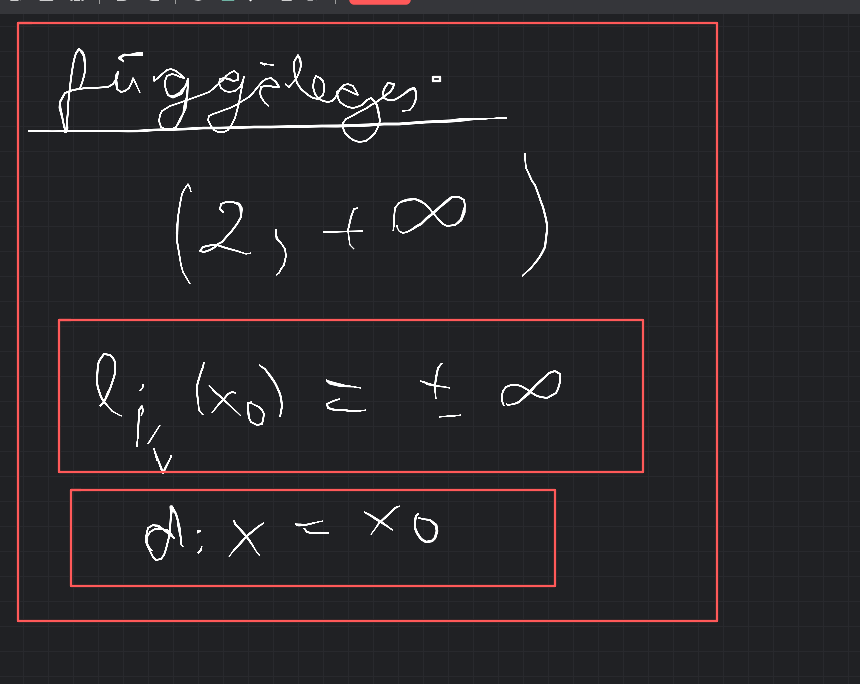 függőleges:
(2, +∞)
l_{j/v} (x₀) = ±∞
d: x = x₀